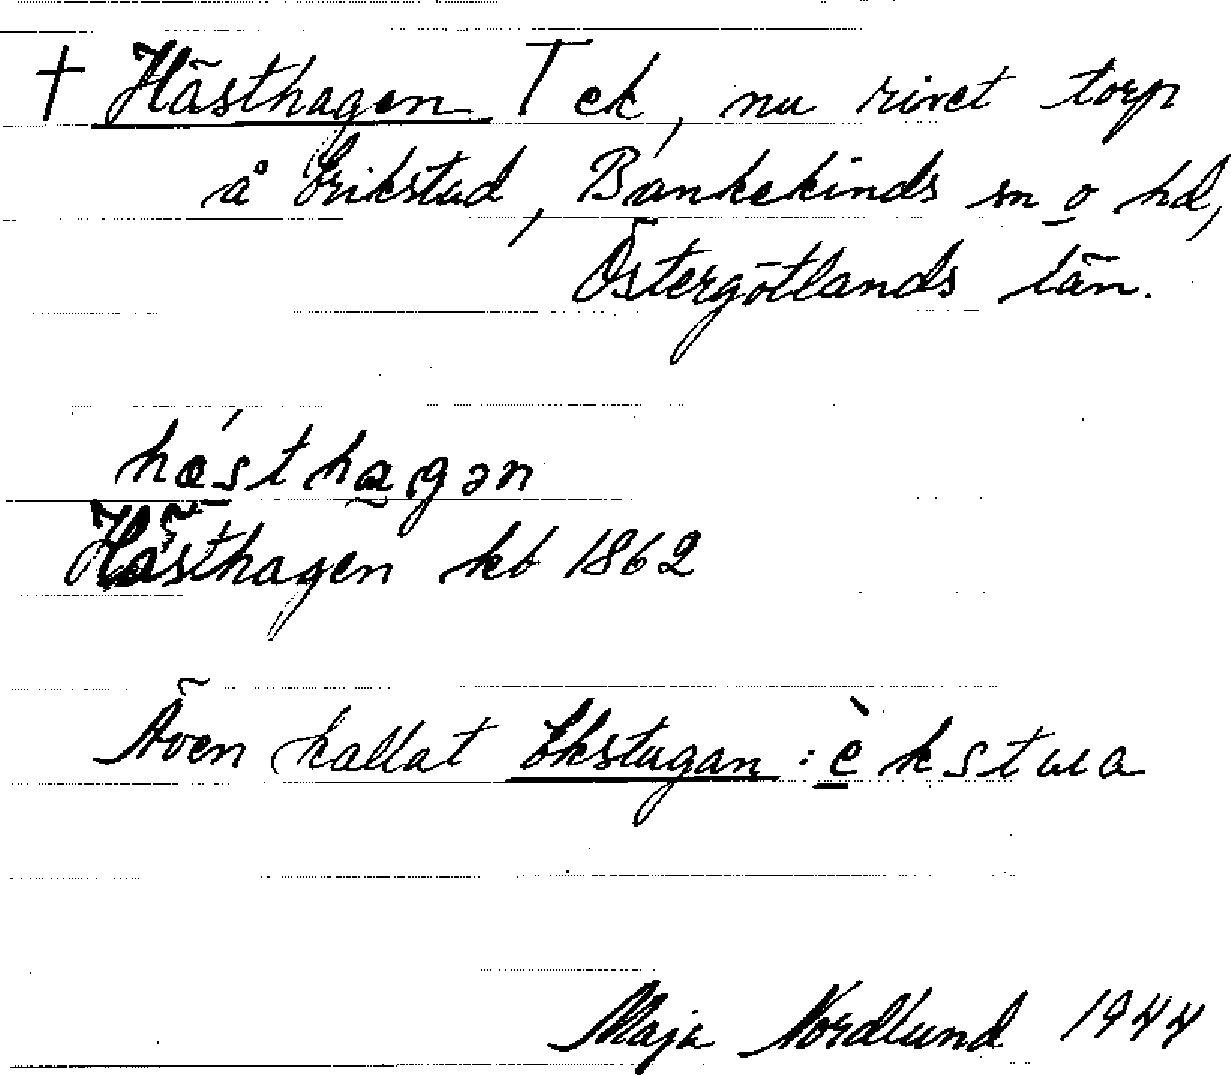 † Hästhagen T ek, nu rivet torp
å Erikstad, Bankekinds sn o hd,
Östergötlands län.
hǽsthagən
Hästhagen kb 1862
Även kallat Ekstugan : èkstua
Maja Nordlund 1944